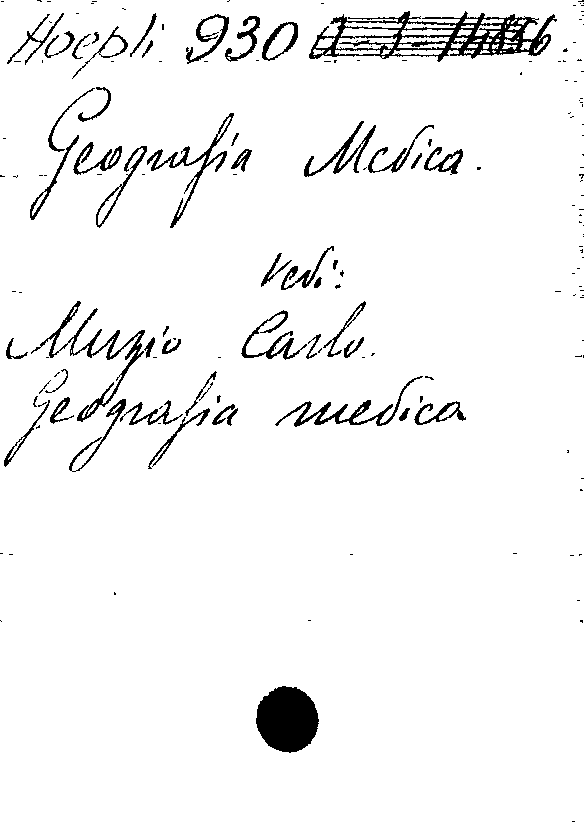 Hoepli 930
Geografia Medica.
Vedi:
Muzio Carlo.
Geografia medica